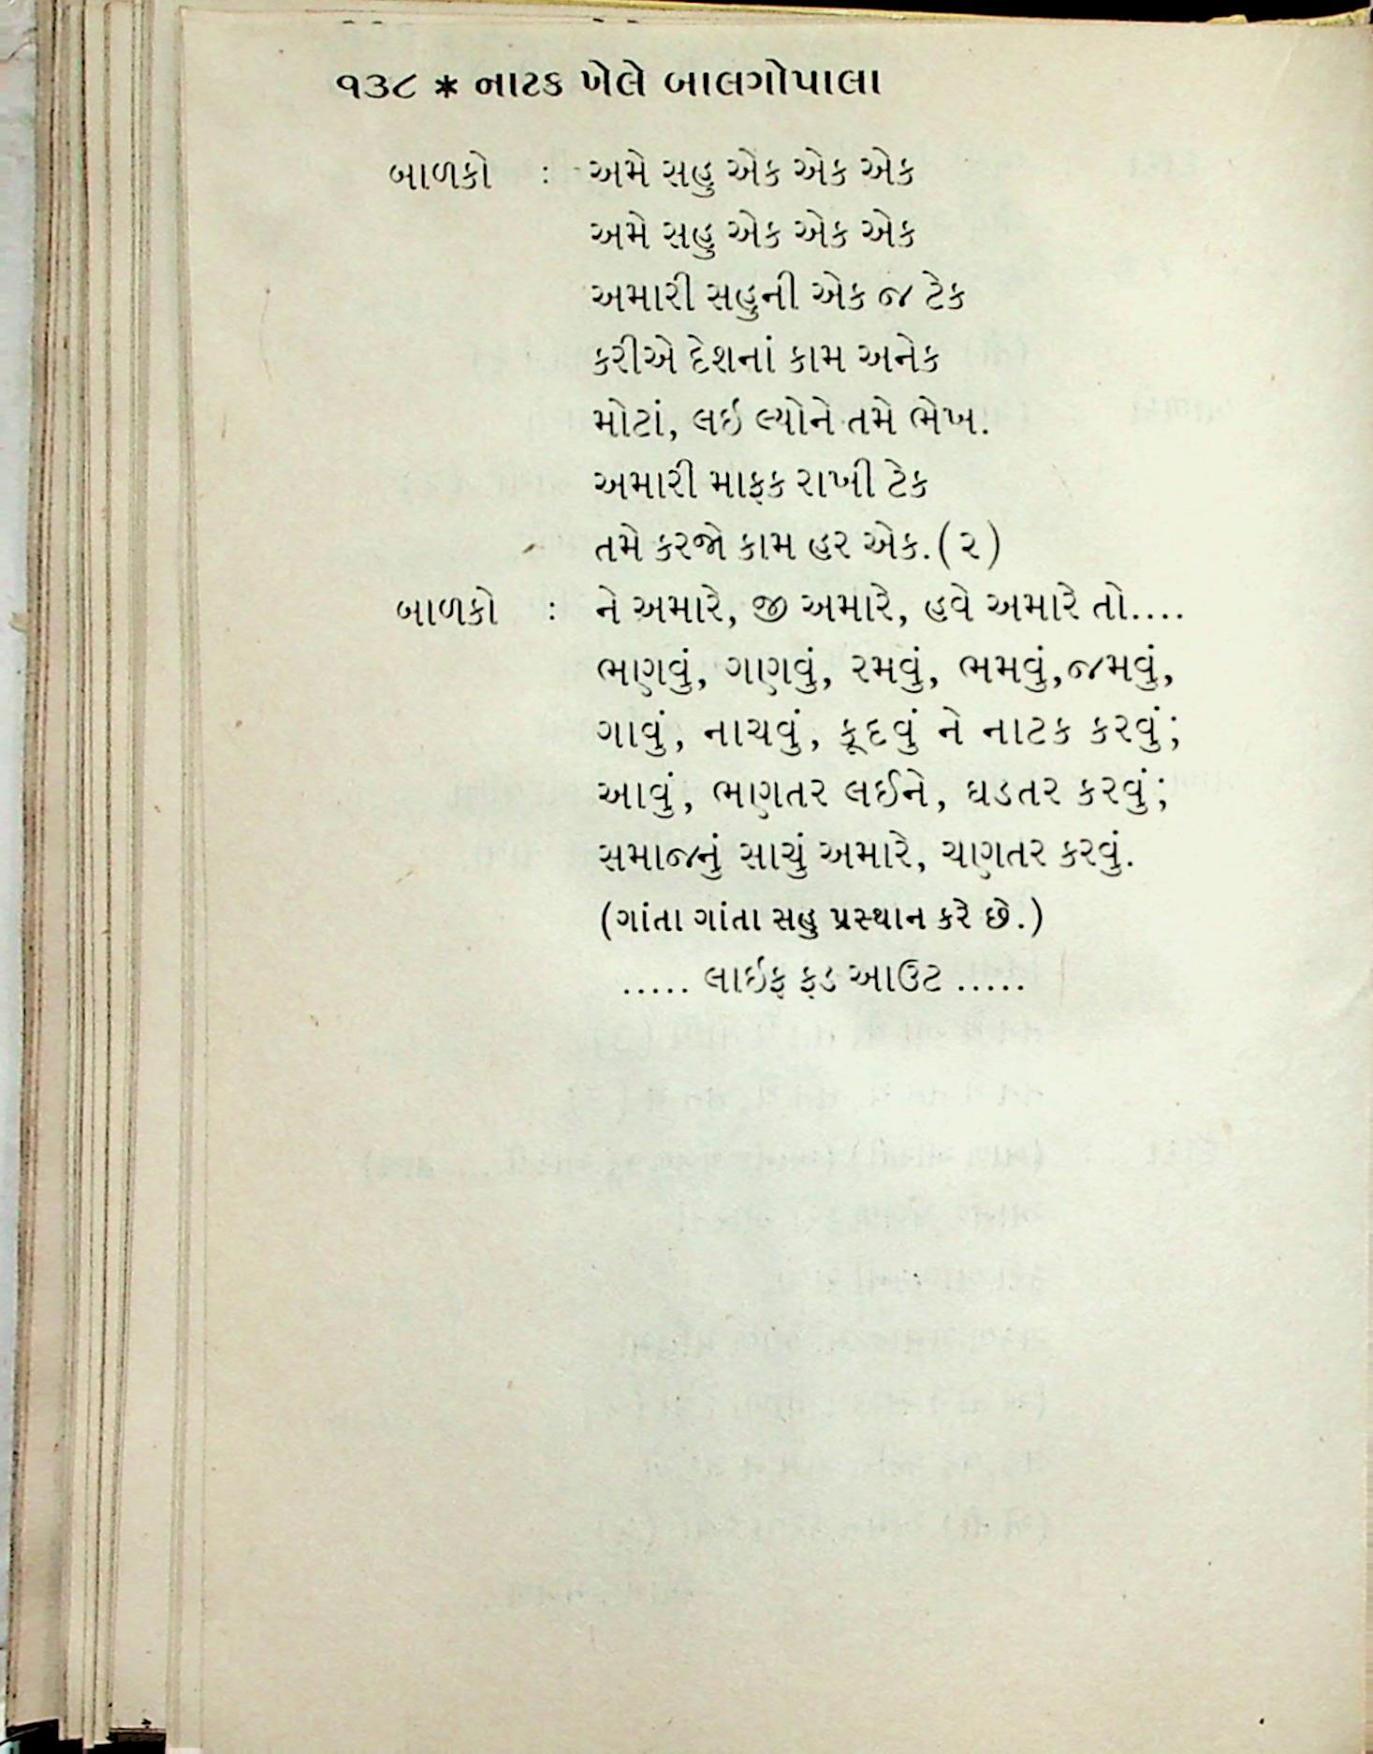 ૧૩૮ * નાટક ખેલે બાલગોપાલા
બાળકો : અમે સહુ એક એક એક
અમે સહુ એક એક એક
અમારી સહુની એક જ ટેક
કરીએ દેશનાં કામ અનેક
મોટાં, લઇ લ્યોને તમે ભેખ.
અમારી માફક રાખી ટેક
તમે કરજો કામ હર એક.(૨)
બાળકો : ને અમારે, જી અમારે, હવે અમારે તો....
ભણવું, ગણવું, રમવું, ભમવું,જમવું,
ગાવું, નાચવું, કૂદવું ને નાટક કરવું;
આવું, ભણતર લઈને, ઘડતર કરવું;
સમાજનું સાચું અમારે, ચણતર કરવું.
(ગાંતા ગાંતા સહુ પ્રસ્થાન કરે છે.)
..... લાઇફ ફડ આઉટ .....